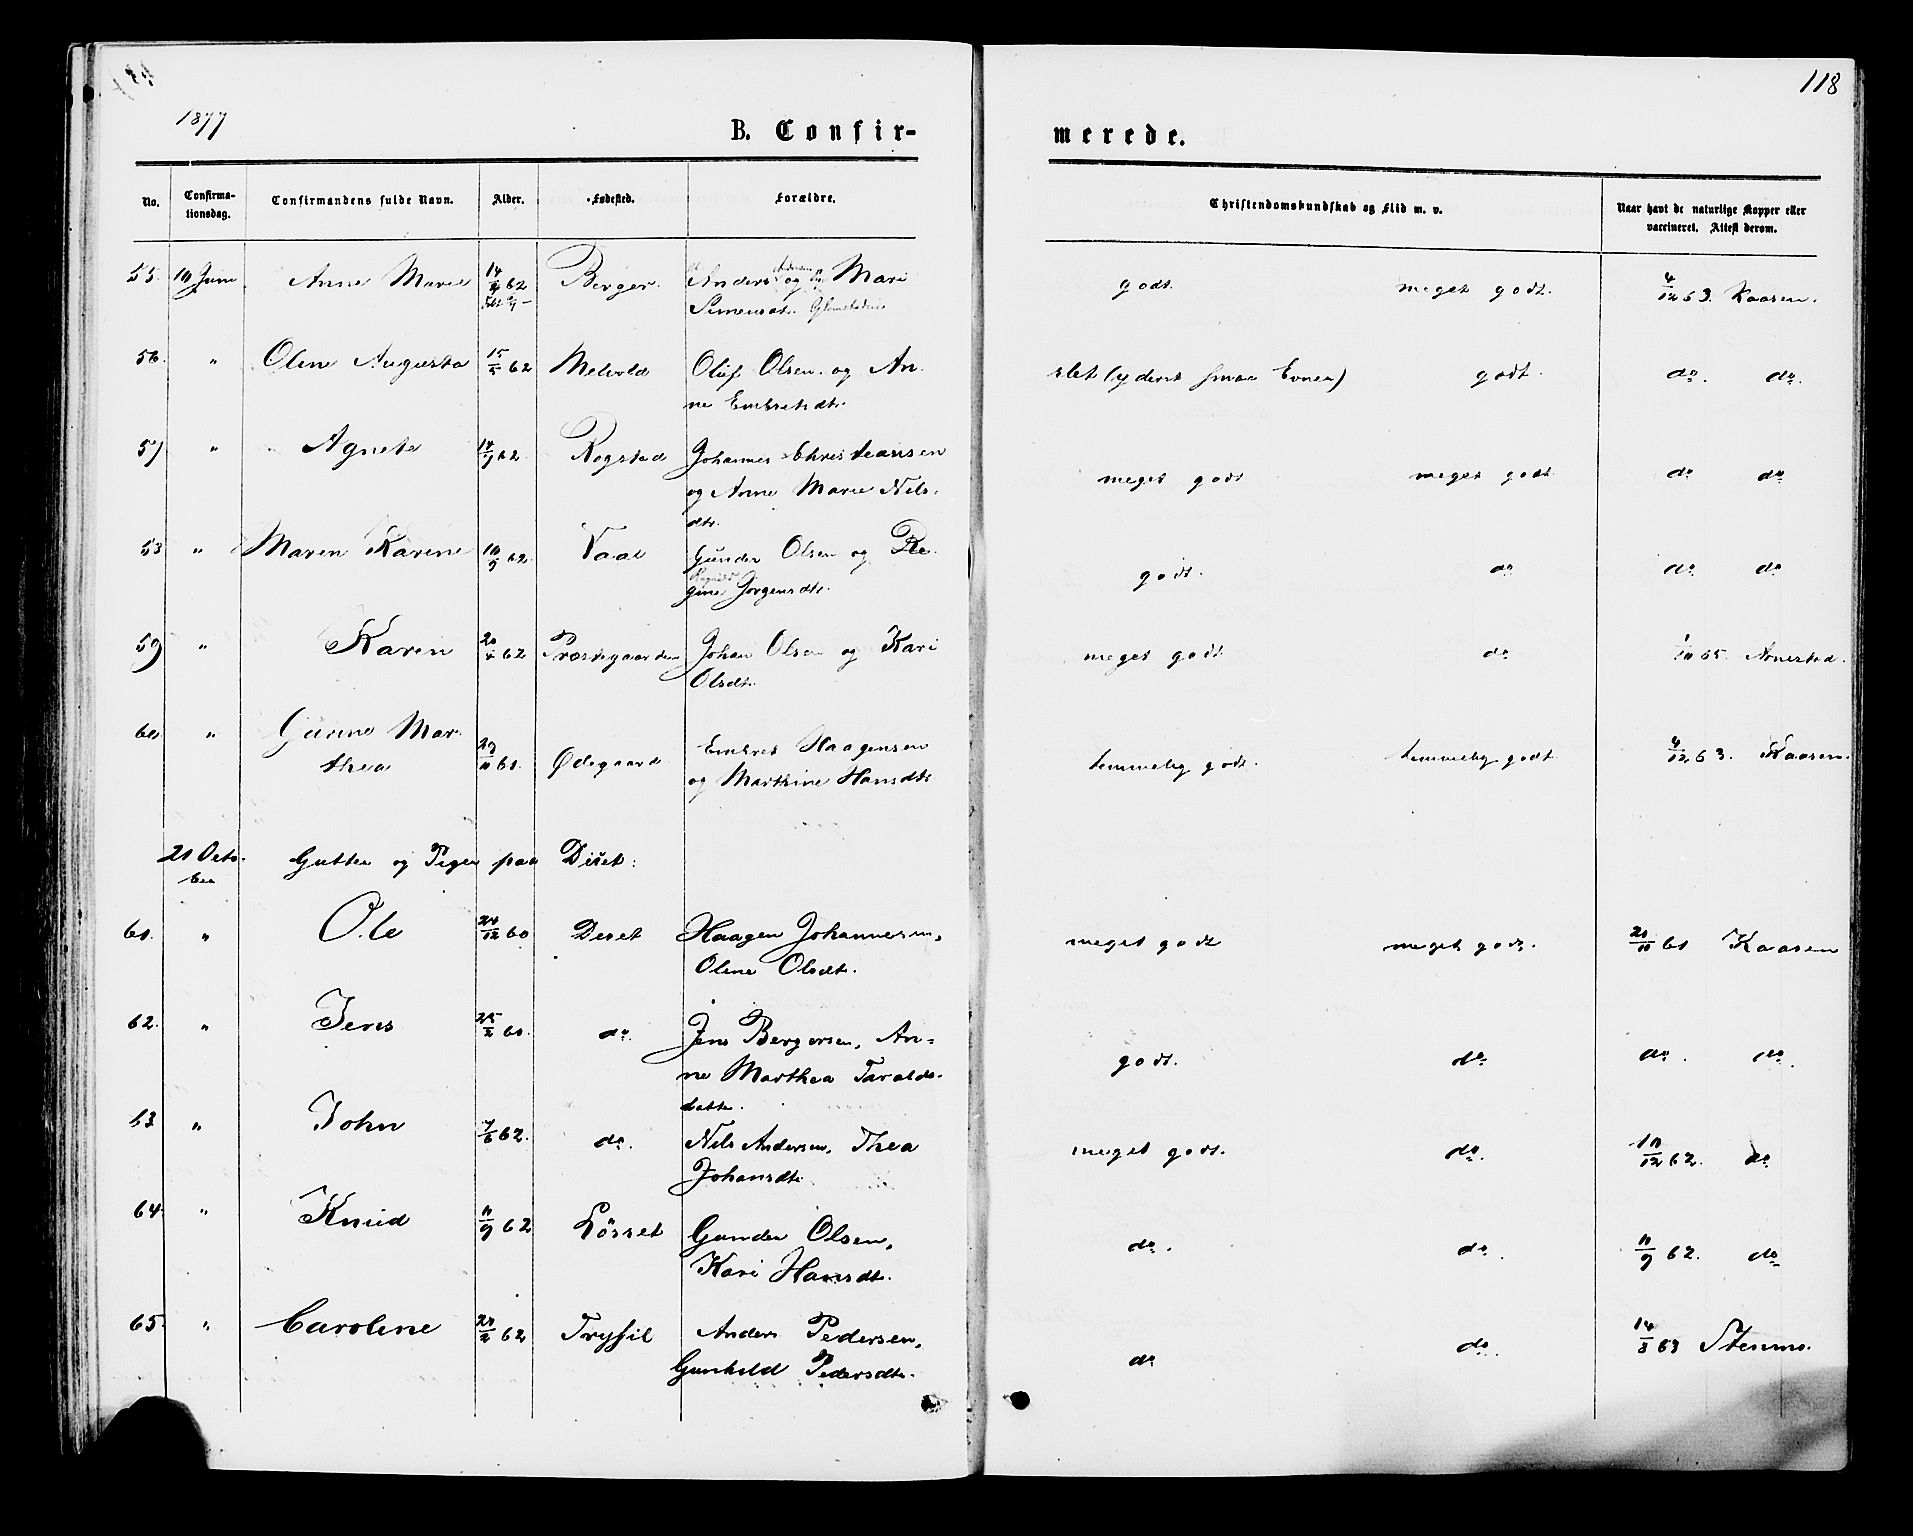 118
1877
B. Confir-
merede.
No.
Confirma-
tionsdag.
Confirmandens fulde Navn.
Alder.
Fødested.
Forældre.
Christendomskundskab og Flid m. v.
Naar havt de naturlige Kopper eller
vaccineret. Attest derom.
55. 10 Juni Anne Marie 62 Berger Anders og Mari
Simensdt.
godt. meget godt. 4/12 63. Kaasen.
56. " Oline Augusta 15/5 62 Melvold Oluf Olsen og An-
ne Embretsdt.
slet (yderst smaa Evner) godt. do. do.
57 " Agnete 62 Rogstad Johannes Christiansen
og Anne Marie Nils-
dt.
meget godt meget godt do do
58 " Maren Karine 10/5 62 Vaal Gunder Olsen og Re-
gine Jørgensdt.
godt. do do do
59 " Karen 62 Præstegaarden Johan Olsen og Kari
Olsdt.
meget godt do 65. Arnestad.
60 " Gurine Mar-
thea Ødegaard Embret Haagensen
og Marthine Hansdt
temmelig godt. temmelig godt 4/12 63. Kaasen.
21 Octo-
ber Gutter og Piger paa Diset:
61. " Ole 60 Deset Haagen Johannesen,
Oline Olsdt.
meget godt meget godt. Kaasen
62. " Jens do. Jens Bergersen, An-
ne Marthea Taralds-
datter.
godt. do do. do.
63 " John 62. do. Nils Andersen, Thea
Johansdt.
meget godt. do. 10/12 62. do
64. " Knud 11/9 62 Løsset Gunder Olsen,
Kari Hansdt.
do. do. 11/9 62. do
65. " Caroline 62 Trysil Anders Pedersen,
Gunhild Pedersdt.
do do. 14/8 63 Stenmo.